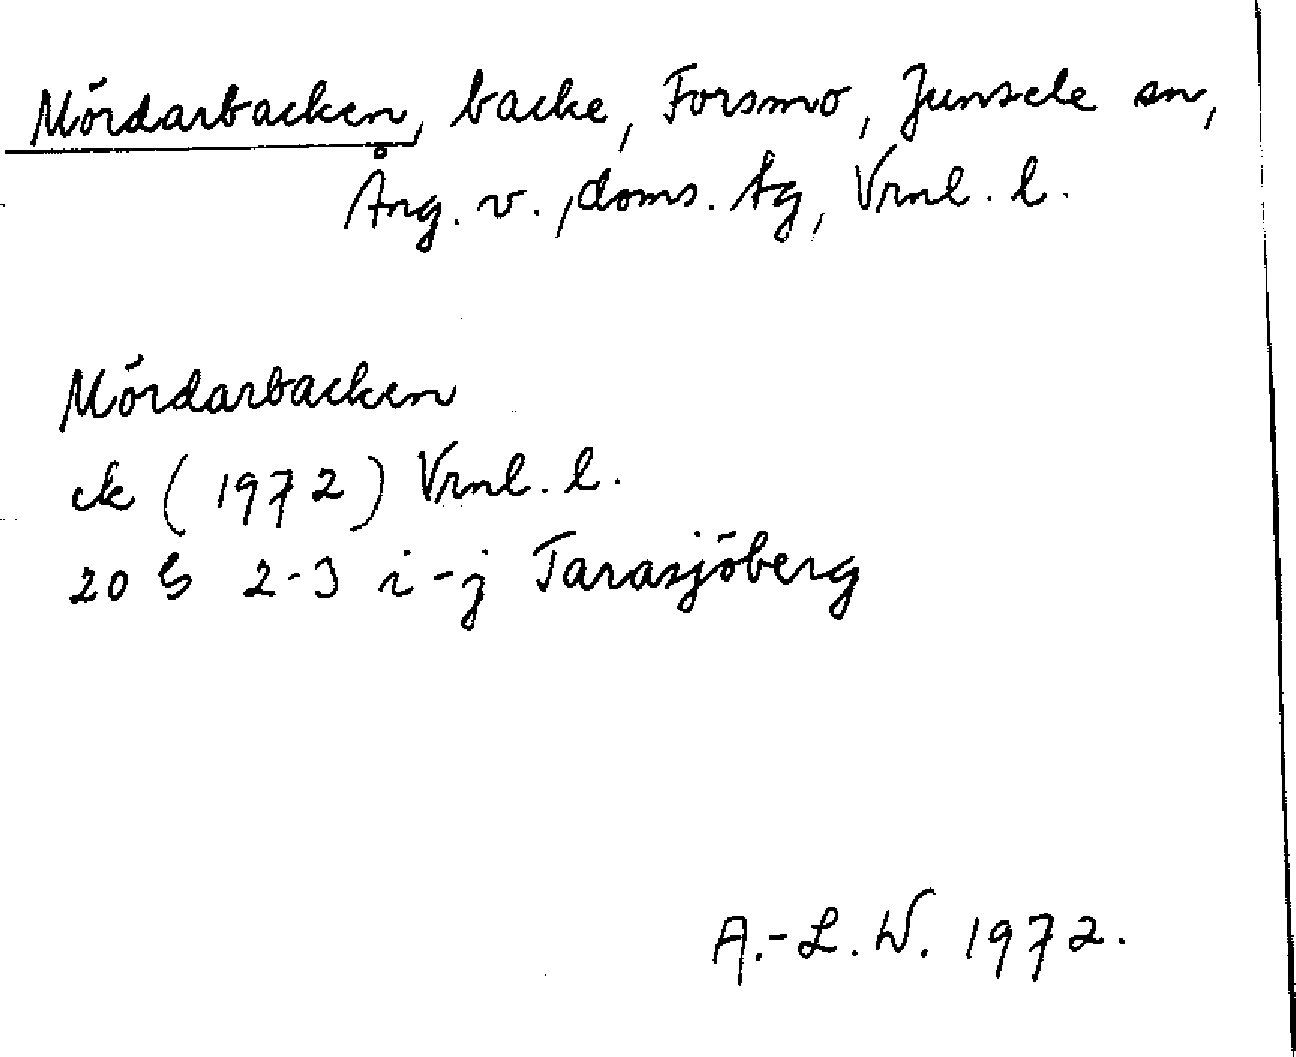 Mördarbacken, backe, Forsmo, Junsele sn,
Ång. v., doms. tg, Vrnl. l.
Mördarbacken
ek (1972) Vrnl. l.
20 G 2-3 i-j Tarasjöberg
A.-L. W. 1972.